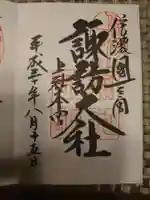 信濃國一之宮
諏訪大社
上社本宮
平成三十年八月十五日